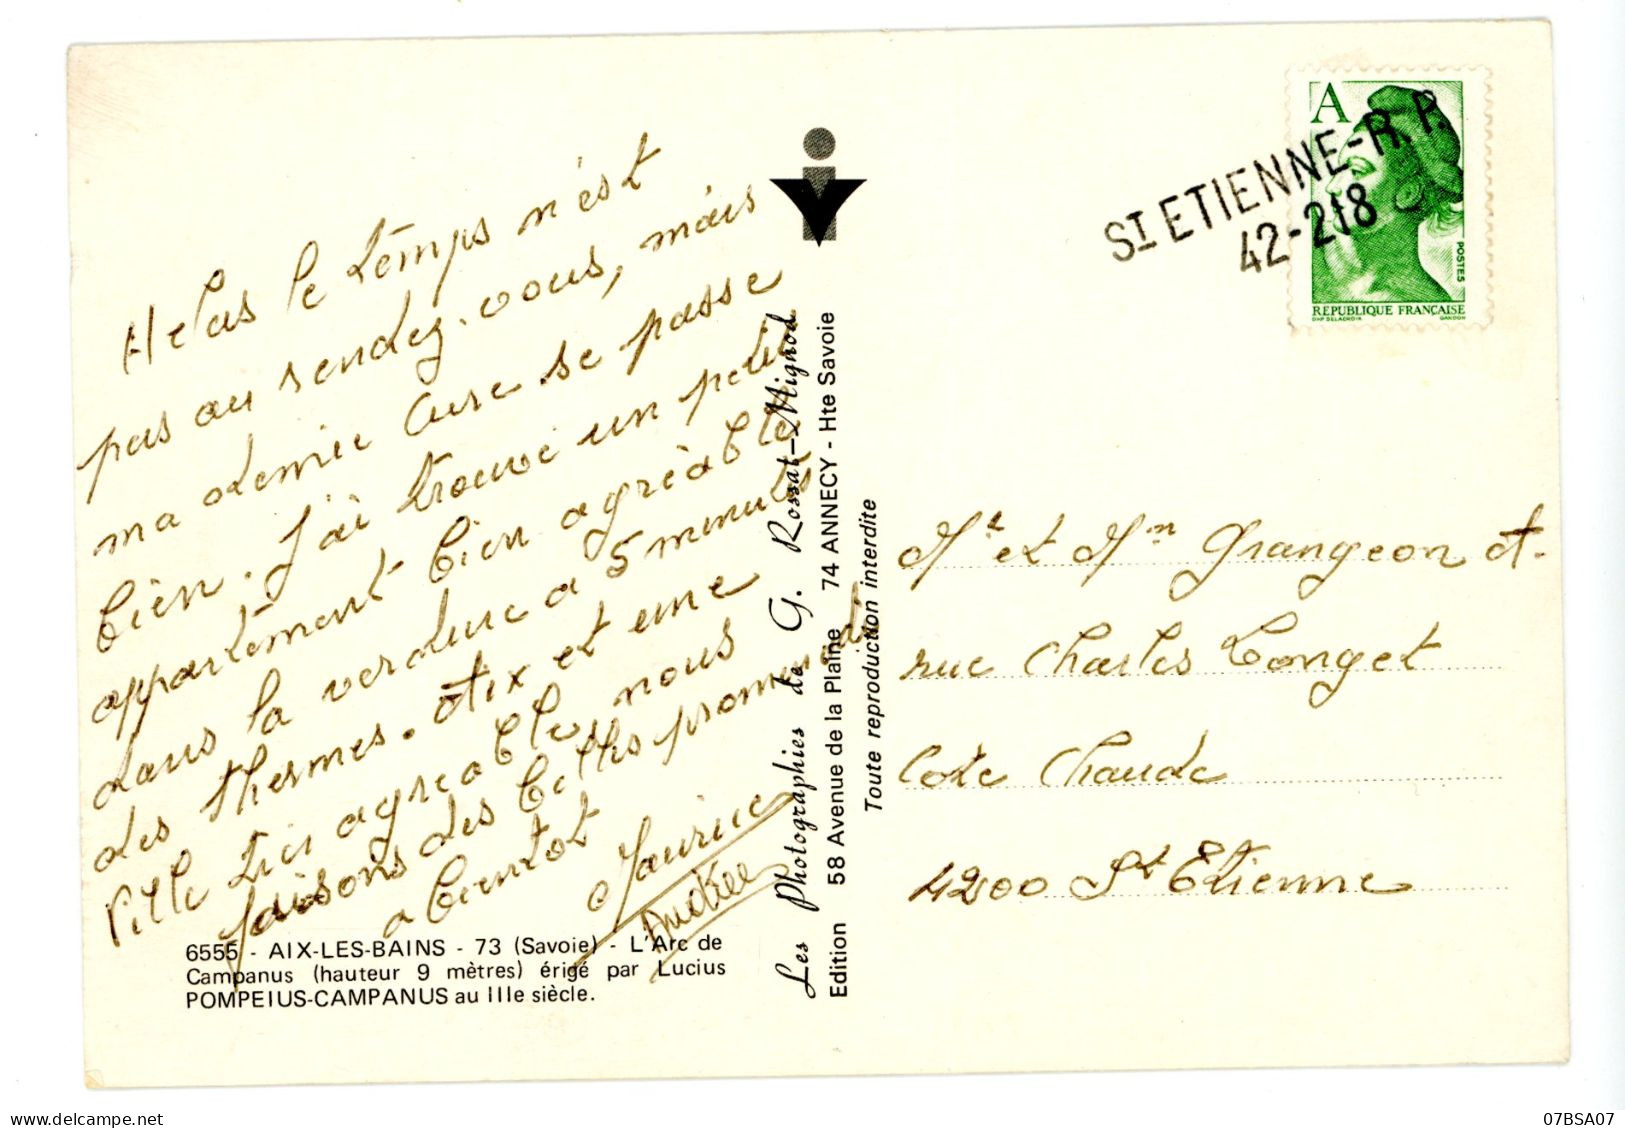 Helas le temps n'est
pas au rendez-vous, mais
ma dernière cure se passe
bien. J'ai trouvé un petit
appartement bien agréable
dans la verdure a 5 minutes
des thermes. Aix et une
ville très agréable, nous
faisons des belles promenades
a bientot
Maurice
Andrée
6555 - AIX-LES-BAINS - 73 (Savoie) - L'Arc de
Campanus (hauteur 9 mètres) érigé par Lucius
POMPEIUS-CAMPANUS au IIIe siècle.
Les Photographies de G. Rossat-Mignod
Edition 58 Avenue de la Plaine 74 ANNECY - Hte Savoie
Toute reproduction interdite
A
POSTES
REPUBLIQUE FRANÇAISE
D'AP DELACROIX GANDON
ST ETIENNE-R.P.
42-218
Mr et Mm Grangeon A.
rue Charles Conget
Cote Chaude
4200 St Etienne
delcampe.net
07BSA07